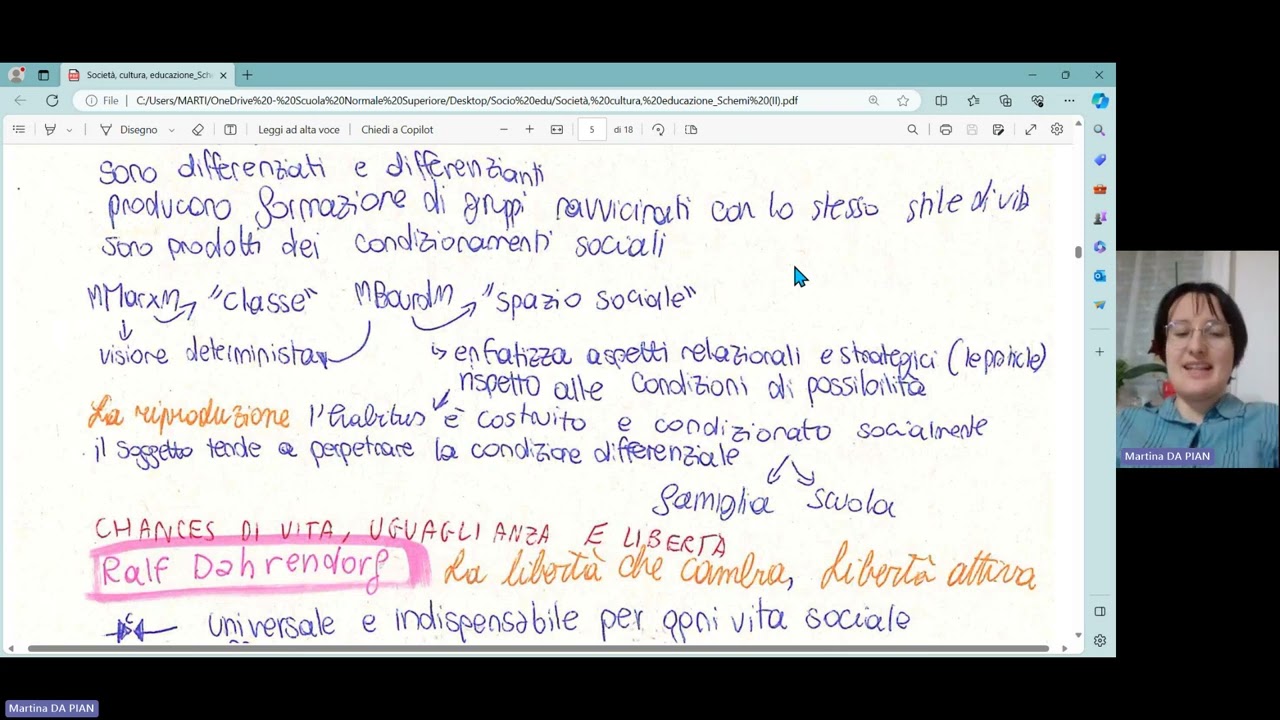 Società, cultura, educazione_Sche
File
C:/Users/MARTI/OneDrive%20-%20Scuola%20Normale%20Superiore/Desktop/Socio%20edu/Società,%20cultura,%20educazione_Schemi%20(II).pdf
Disegno
Leggi ad alta voce
Chiedi a Copilot
5
di 18
sono differenziati e differenzianti
producono formazione di gruppi ravvicinati con lo stesso stile di vita
sono prodotti dei condizionamenti sociali
"classe"
"spazio sociale"
visione determinista
enfatizza aspetti relazionali e strategici (le pratiche)
rispetto alle condizioni di possibilità
La riproduzione l'habitus è costruito e condizionato socialmente
il soggetto tende a perpetrare la condizione differenziale
famiglia scuola
CHANCES DI VITA, UGUAGLIANZA E LIBERTÀ
Ralf Dahrendorf La libertà che cambia, Libertà attiva
universale e indispensabile per ogni vita sociale
Martina DA PIAN
Martina DA PIAN